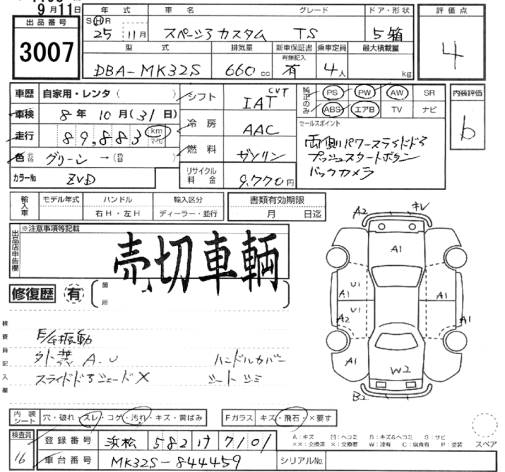 9月11日
出品番号 3007
年式 車名 グレード ドア・形状 評価点
SHR 25年11月 スペーシアカスタム TS 5箱 4
型式 排気量 新車保証書 乗車定員 最大積載量
有無記入
DBA-MK32S 660cc 有 4人 kg
車歴 自家用・レンタ( ) シフト IAT CVT 純正のみ PS PW AW SR 内装評価
車検 8年10月(31日) 冷房 AAC ABS エアB TV ナビ b
走行 89,883 km 燃料 ガソリン セールスポイント
色 グリーン→(替) リサイクル料金 9,770円 両側パワースライドドア
カラーNo ZVD プッシュスタートボタン
バックカメラ
輸入車 モデル年式 ハンドル 輸入区分 書類有効期限
右H・左H ディーラー・並行 月 日迄
出品店申告欄 ※注意事項等記載
売切車輌
修復歴 有 箇所
検査員記入欄
E/G振動
外装A.U ハンドルカバー
スライドドアシェード× シートシミ
A2 キレ
A1
U1 U1
A1 A2 A1 A1
W2
B2
内装シート 穴・破れ スレ・コゲ 汚れ・キズ・黄ばみ Fガラス キズ・飛石・×要す
検査員 16 登録番号 浜松 582 け 7101
車台番号 MK32S-844459 シリアルNo.
スペア